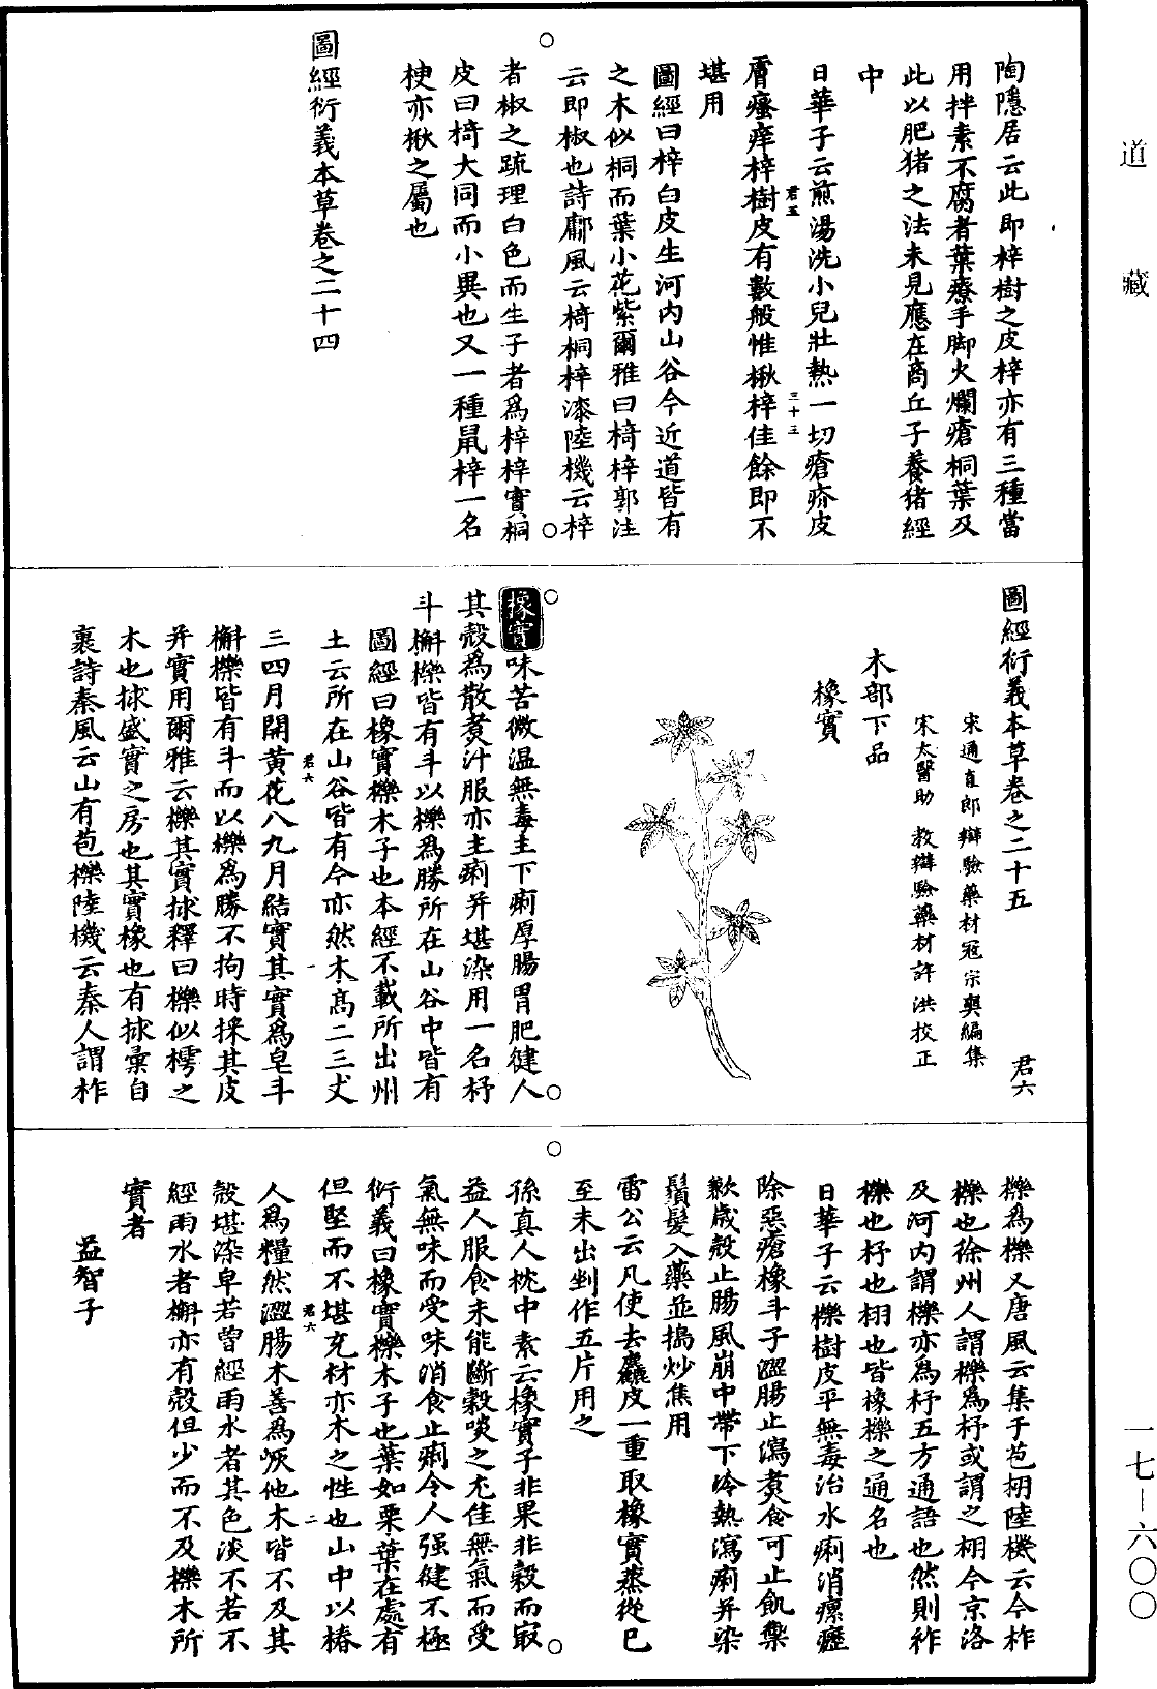 道藏
陶隱居云此即梓樹之皮梓亦有三種當
用拌素不腐者葉療手脚火爛瘡桐葉及
此以肥猪之法未見應在商丘子養猪經
中
日華子云煎湯洗小兒壯熱一切瘡疥皮
君五
三十三
膚瘙痒梓樹皮有數般惟楸梓佳餘即不
堪用
圖經曰梓白皮生河内山谷今近道皆有
之木似桐而葉小花紫爾雅曰椅梓郭注
云即椒也詩鄘風云椅桐梓漆陸機云梓
者椒之疏理白色而生子者爲梓梓實桐
皮曰椅大同而小異也又一種鼠梓一名
楰亦楸之屬也
圖經衍義本草卷之二十四
圖經衍義本草卷之二十五
君六
宋通直郎辯驗藥材冦宗奭編集
宋太醫助教辯驗藥材許洪校正
木部下品
橡實
橡實味苦微温無毒主下痢厚腸胃肥健人
其殼爲散煑汁服亦主痢并堪染用一名杼
斗槲櫟皆有斗以櫟爲勝所在山谷中皆有
圖經曰橡實櫟木子也本經不載所出州
土云所在山谷皆有今亦然木高二三丈
君六
一
三四月開黄花八九月結實其實爲皂斗
槲櫟皆有斗而以櫟爲勝不拘時採其皮
并實用爾雅云櫟其實梂釋曰櫟似樗之
木也梂盛實之房也其實橡也有梂彙自
裹詩秦風云山有苞櫟陸機云秦人謂柞
櫟爲櫟又唐風云集于苞栩陸機云今柞
櫟也徐州人謂櫟爲杼或謂之栩今京洛
及河内謂櫟亦爲杼五方通語也然則柞
櫟也杼也栩也皆橡櫟之通名也
日華子云櫟樹皮平無毒治水痢消瘰癧
除惡瘡橡斗子澀腸止瀉煑食可止飢禦
歉歳殼止腸風崩中帶下冷熱瀉痢并染
鬚髮入藥並搗炒焦用
雷公云凡使去麤皮一重取橡實蒸從巳
至未出剉作五片用之
孫真人枕中素云橡實子非果非穀而㝡
益人服食未能斷穀啖之尤佳無氣而受
氣無味而受味消食止痢令人强健不極
衍義曰橡實櫟木子也葉如栗葉在處有
但堅而不堪充材亦木之性也山中以椿
君六
二
人爲糧然澀腸木善爲炭他木皆不及其
殼堪染皂若曽經雨水者其色淡不若不
經雨水者槲亦有殼但少而不及櫟木所
實者
益智子
一七－六〇〇